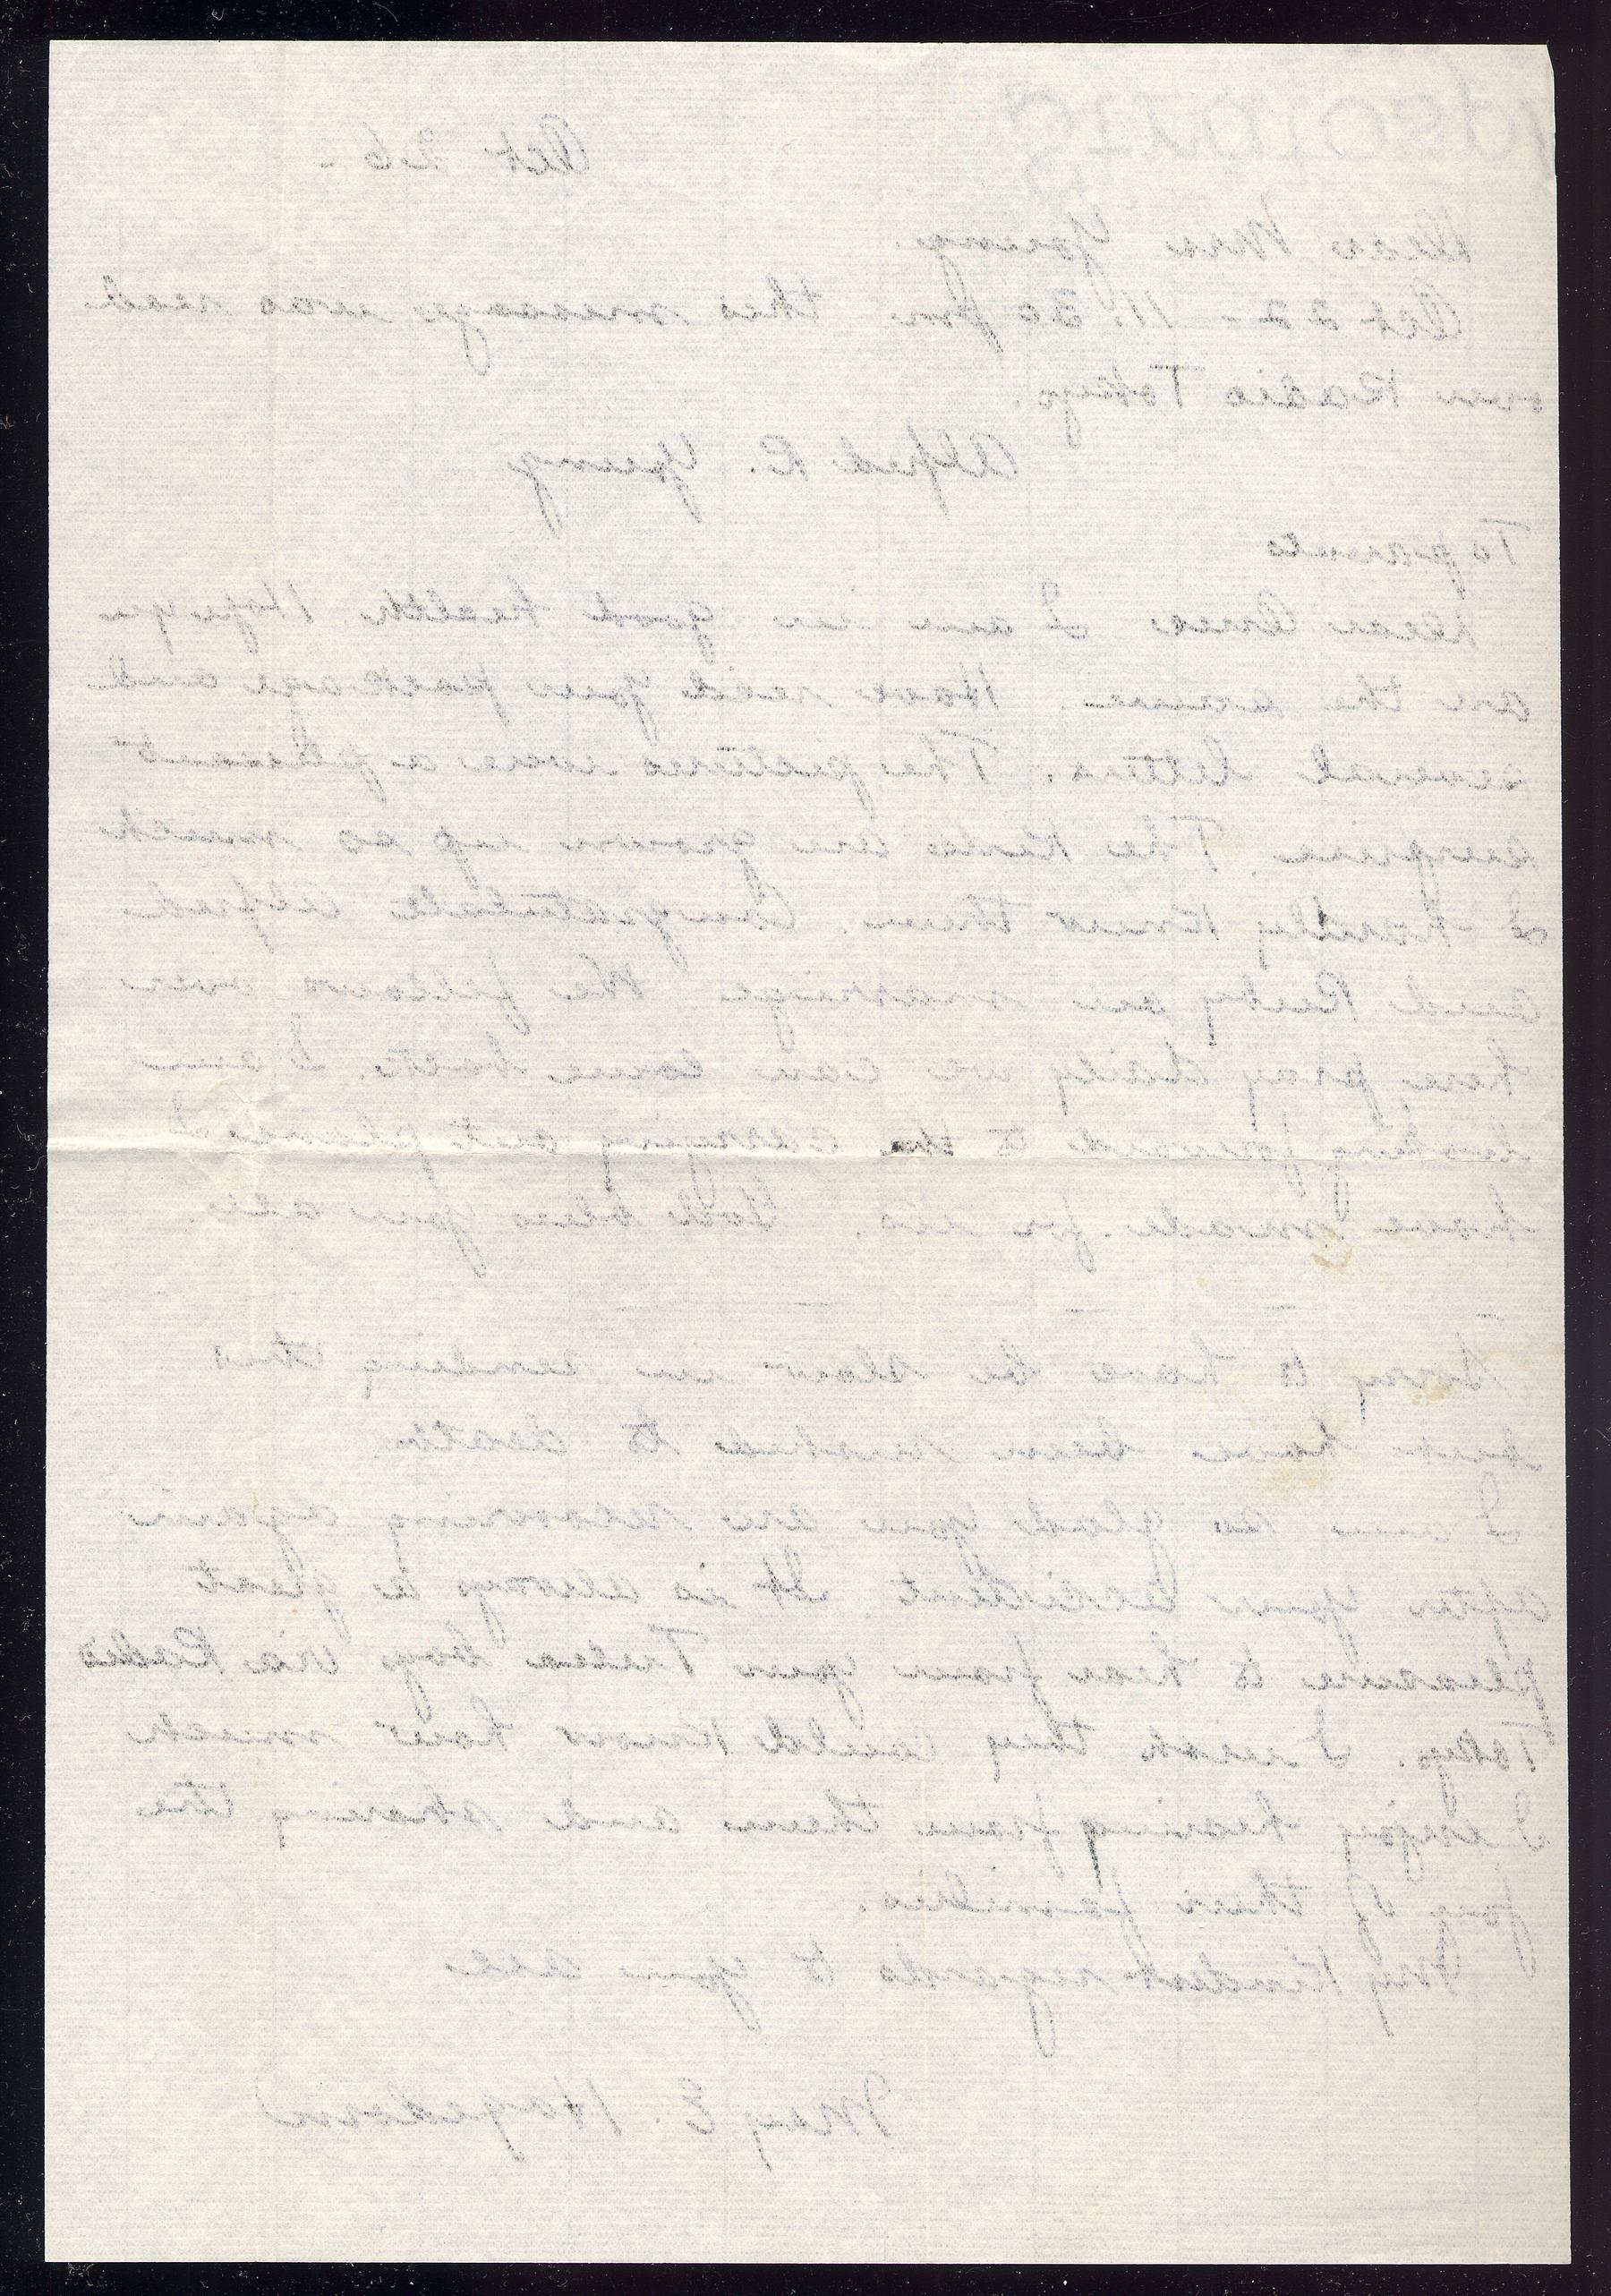 Oct 26 -
Dear Mrs Young.
Oct 22 - 11:30 pm this message was read
over Radio Tokyo.
Alfred R. Young
To parents
Dear Ones I am in good health Hope you
are the same. Have recd your package and
several letters. The pictures were a pleasant
surprise. The kids are grown up so much
I hardly knew them. Congratulate Alfred
and Ruby on marriage The fellows over
here pray daily we can come back. I am
looking forward to the carrying out plans I
have made for us. God bless you all.
Sorry to have be slow in sending this
but have been rushed to death
I am so glad you are recovering again
after your accident. It is always a great
pleasure to hear from your Tulsa boys via Radio
Tokyo. I wish they could know how much
I enjoy hearing from them and sharing the
joy of their families.
My Kindest regards to you all
Mary E. Hagedorn